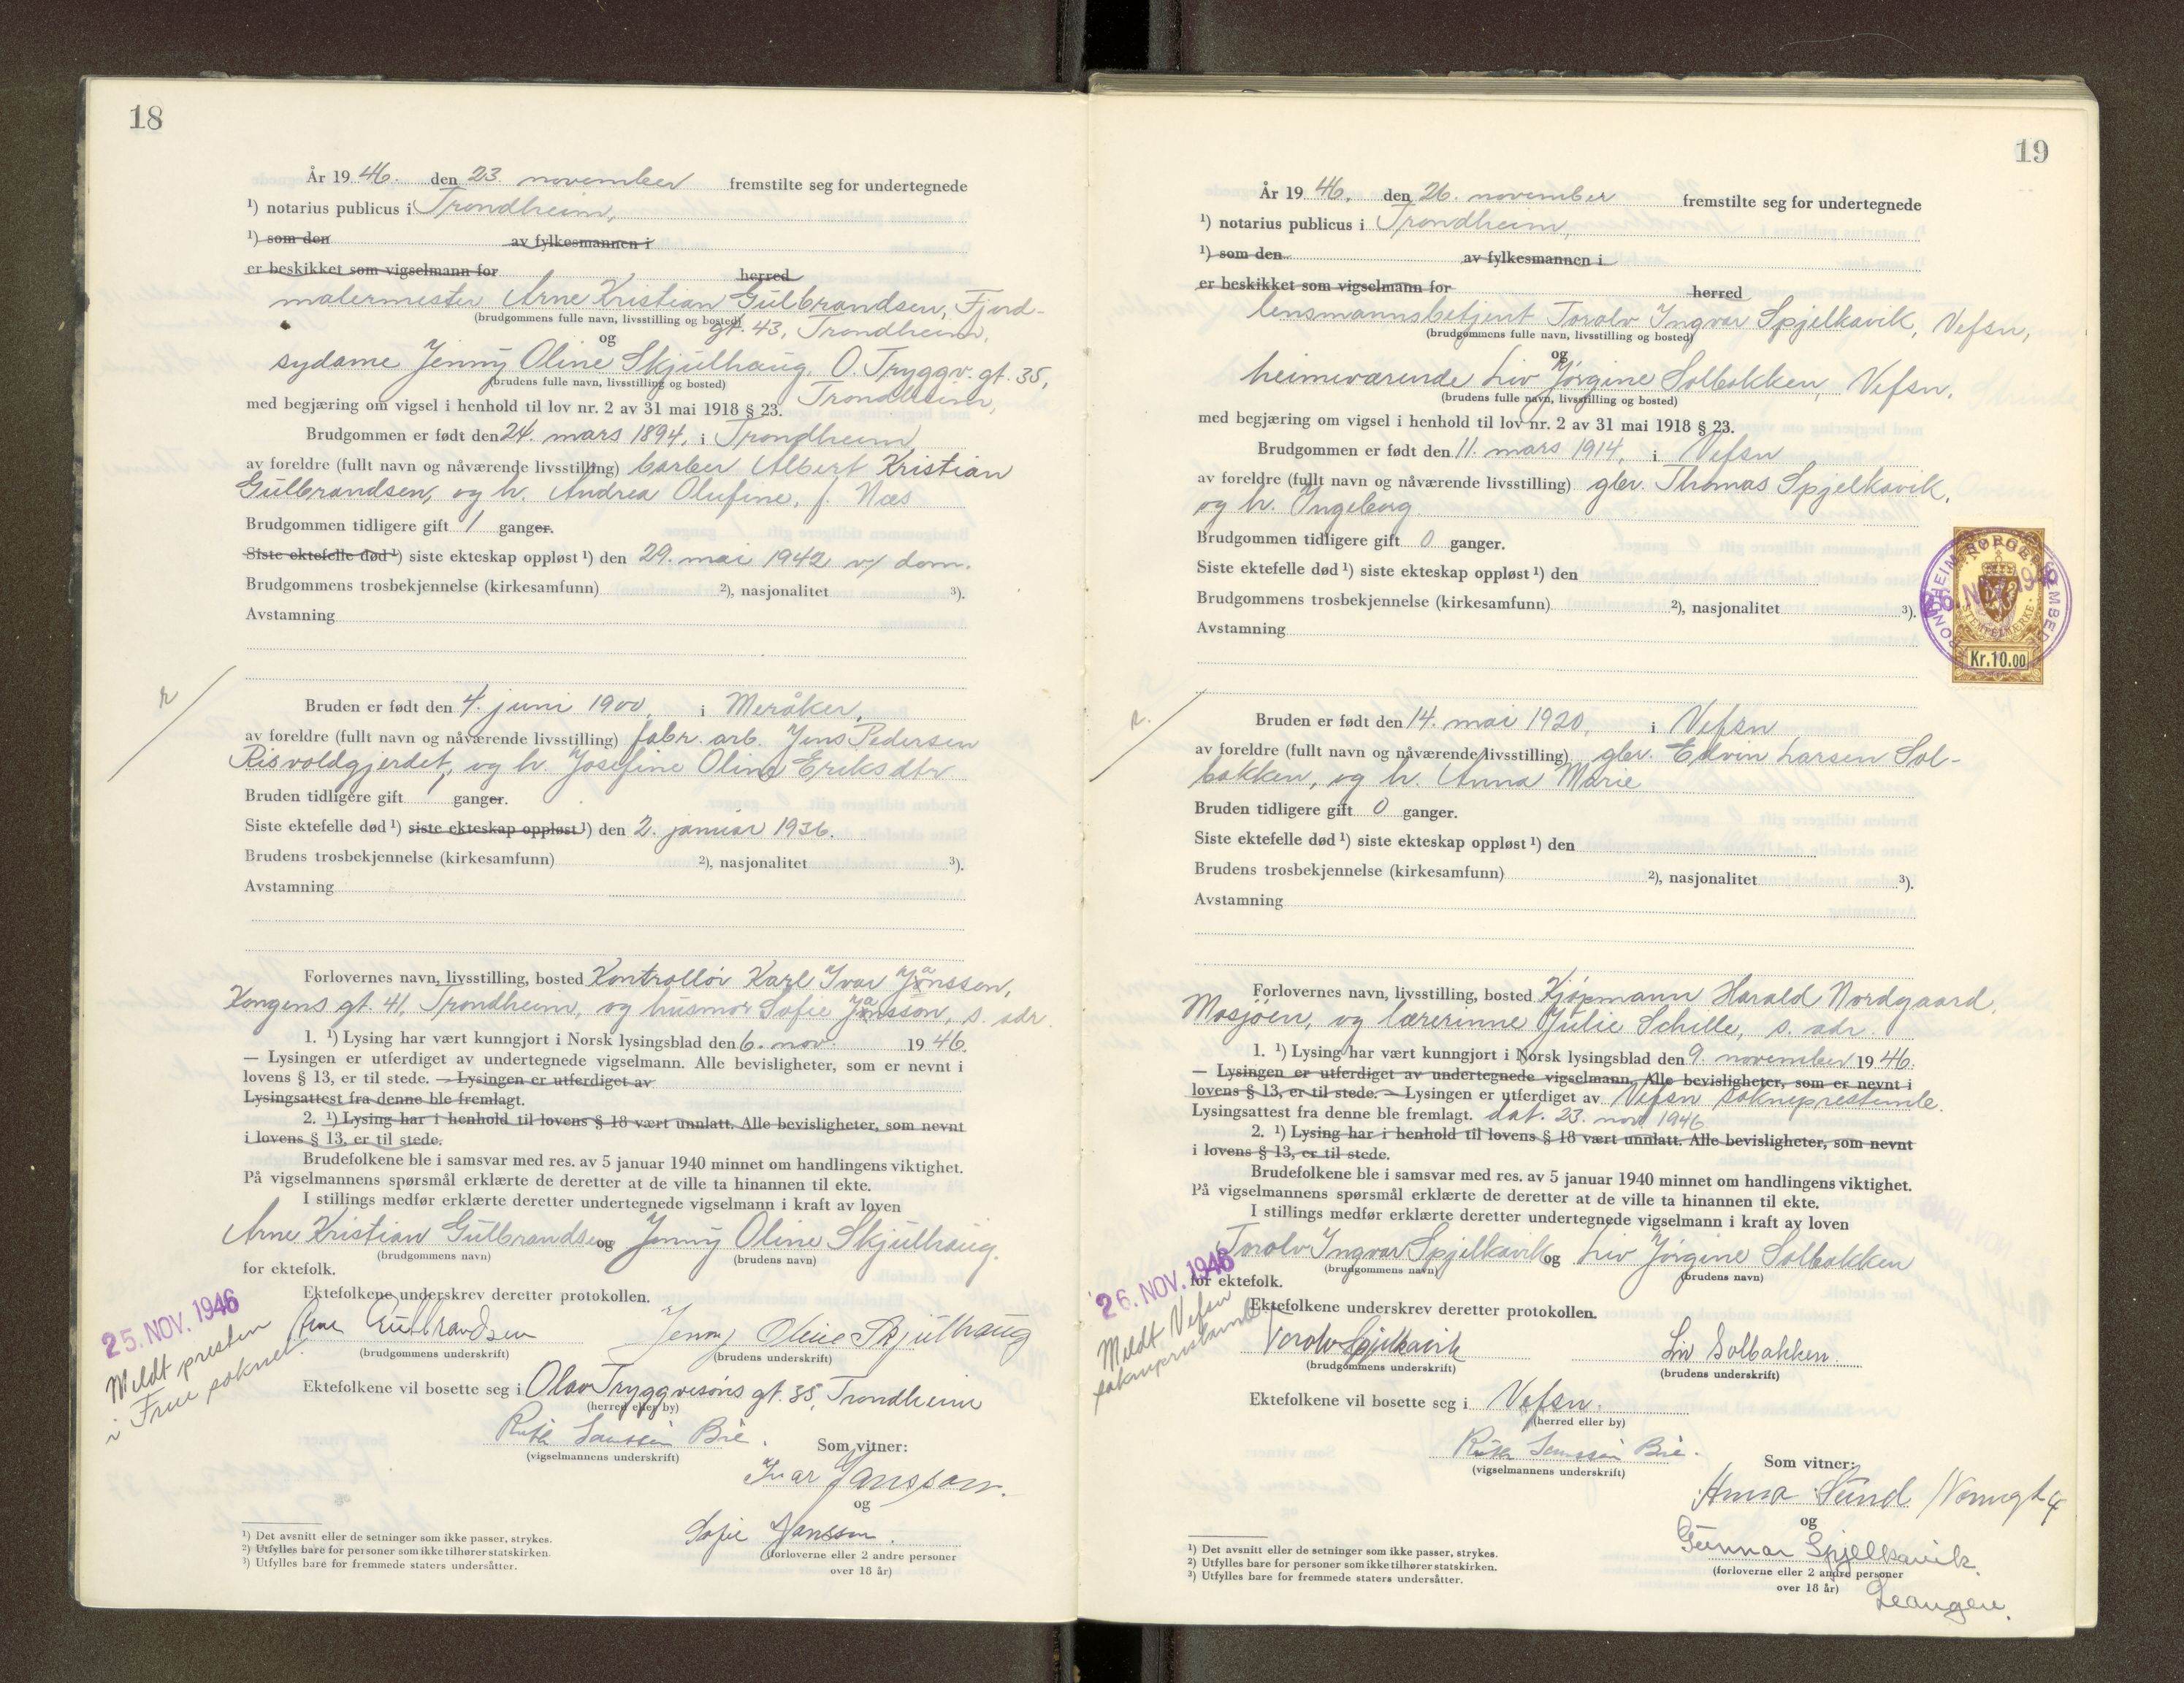 18
År 19 46. den 23. november fremstilte seg for undertegnede
¹) notarius publicus i Trondheim,
¹) som den av fylkesmannen i
er beskikket som vigselmann for herred
malermester Arne Kristian Gulbrandsen, Fjord-
(brudgommens fulle navn, livsstilling og bosted)
gt. 43, Trondheim,
og
sydame Jenny Oline Skjulhaug, O. Tryggv. gt. 35,
(brudens fulle navn, livsstilling og bosted)
Trondheim,
med begjæring om vigsel i henhold til lov nr. 2 av 31 mai 1918 § 23.
Brudgommen er født den 24. mars 1894, i Trondheim
av foreldre (fullt navn og nåværende livsstilling) barber Albert Kristian
Gulbrandsen, og h. Andrea Olufine, f. Næs
Brudgommen tidligere gift 1 ganger.
Siste ektefelle død ¹) siste ekteskap oppløst ¹) den 29. mai 1942 v/ dom.
Brudgommens trosbekjennelse (kirkesamfunn) ²), nasjonalitet ³).
Avstamning
r
Bruden er født den 4. juni 1900, i Meråker,
av foreldre (fullt navn og nåværende livsstilling) fabr. arb. Jens Pedersen
Risvoldgjerdet, og h. Josefine Oline Eriksdtr
Bruden tidligere gift 1 ganger.
Siste ektefelle død ¹) siste ekteskap oppløst ¹) den 2. januar 1936.
Brudens trosbekjennelse (kirkesamfunn) ²), nasjonalitet ³).
Avstamning
Forlovernes navn, livsstilling, bosted Kontrollør Karl Ivar Janssen,
Kongens gt. 41, Trondheim, og husmor Sofie Jansson, s. adr.
1. ¹) Lysing har vært kunngjort i Norsk lysingsblad den 6. nov. 19 46.
— Lysingen er utferdiget av undertegnede vigselmann. Alle bevisligheter, som er nevnt i
lovens § 13, er til stede. — Lysingen er utferdiget av
Lysingsattest fra denne ble fremlagt.
2. ¹) Lysing har i henhold til lovens § 18 vært unnlatt. Alle bevisligheter, som nevnt
i lovens § 13, er til stede.
Brudefolkene ble i samsvar med res. av 5 januar 1940 minnet om handlingens viktighet.
På vigselmannens spørsmål erklærte de deretter at de ville ta hinannen til ekte.
I stillings medfør erklærte deretter undertegnede vigselmann i kraft av loven
Arne Kristian Gulbrandsen og Jenny Oline Skjulhaug.
(brudgommens navn) (brudens navn)
for ektefolk.
Ektefolkene underskrev deretter protokollen.
25. NOV. 1946
Meldt presten
i Frue soknet.
Arne Gulbrandsen Jenny Oline Skjulhaug
(brudgommens underskrift) (brudens underskrift)
Ektefolkene vil bosette seg i Olav Tryggvesøns gt. 35, Trondheim
(herred eller by)
Ruth
(vigselmannens underskrift)
Som vitner:
Ivar Jansson.
og
Sofie Jansson.
(forloverne eller 2 andre personer
over 18 år)
¹) Det avsnitt eller de setninger som ikke passer, strykes.
²) Utfylles bare for personer som ikke tilhører statskirken.
³) Utfylles bare for fremmede staters undersåtter.
19
År 19 46, den 26. november fremstilte seg for undertegnede
¹) notarius publicus i Trondheim,
¹) som den av fylkesmannen i
er beskikket som vigselmann for herred
lensmannsbetjent Torolv Ingvar Spjelkavik, Vefsn,
(brudgommens fulle navn, livsstilling og bosted)
og
heimeværende Liv Jørgine Solbakken, Vefsn,
(brudens fulle navn, livsstilling og bosted)
med begjæring om vigsel i henhold til lov nr. 2 av 31 mai 1918 § 23.
Brudgommen er født den 11. mars 1914, i Vefsn
av foreldre (fullt navn og nåværende livsstilling) gbr. Thomas Spjelkavik,
og h. Ingeborg
Brudgommen tidligere gift 0 ganger.
Siste ektefelle død ¹) siste ekteskap oppløst ¹) den
Brudgommens trosbekjennelse (kirkesamfunn) ²), nasjonalitet ³).
Avstamning
Kr.10.00
r.
Bruden er født den 14. mai 1920, i Vefsn
av foreldre (fullt navn og nåværende livsstilling) gbr. Edvin Larsen Sol-
bakken, og h. Anna Marie
Bruden tidligere gift 0 ganger.
Siste ektefelle død ¹) siste ekteskap oppløst ¹) den
Brudens trosbekjennelse (kirkesamfunn) ²), nasjonalitet ³).
Avstamning
Forlovernes navn, livsstilling, bosted Kjøpmann Harald Nordgaard,
Mosjøen, og lærerinne Julie Schille, s. adr.
1. ¹) Lysing har vært kunngjort i Norsk lysingsblad den 9. november 19 46.
— Lysingen er utferdiget av undertegnede vigselmann. Alle bevisligheter, som er nevnt i
lovens § 13, er til stede. — Lysingen er utferdiget av Vefsn sokneprestemb.
Lysingsattest fra denne ble fremlagt. dat. 23. nov. 1946
2. ¹) Lysing har i henhold til lovens § 18 vært unnlatt. Alle bevisligheter, som nevnt
i lovens § 13, er til stede.
Brudefolkene ble i samsvar med res. av 5 januar 1940 minnet om handlingens viktighet.
På vigselmannens spørsmål erklærte de deretter at de ville ta hinannen til ekte.
I stillings medfør erklærte deretter undertegnede vigselmann i kraft av loven
Torolv Ingvar Spjelkavik og Liv Jørgine Solbakken
(brudgommens navn) (brudens navn)
for ektefolk.
26. NOV. 1946
Meldt Vefsn
Ektefolkene underskrev deretter protokollen.
Torolv Spjelkavik Liv Solbakken.
(brudgommens underskrift) (brudens underskrift)
Ektefolkene vil bosette seg i Vefsn.
(herred eller by)
Ruth
(vigselmannens underskrift)
Som vitner:
Anna Sund
og
Gunnar Spjelkavik.
(forloverne eller 2 andre personer
over 18 år)
Leangen.
¹) Det avsnitt eller de setninger som ikke passer, strykes.
²) Utfylles bare for personer som ikke tilhører statskirken.
³) Utfylles bare for fremmede staters undersåtter.